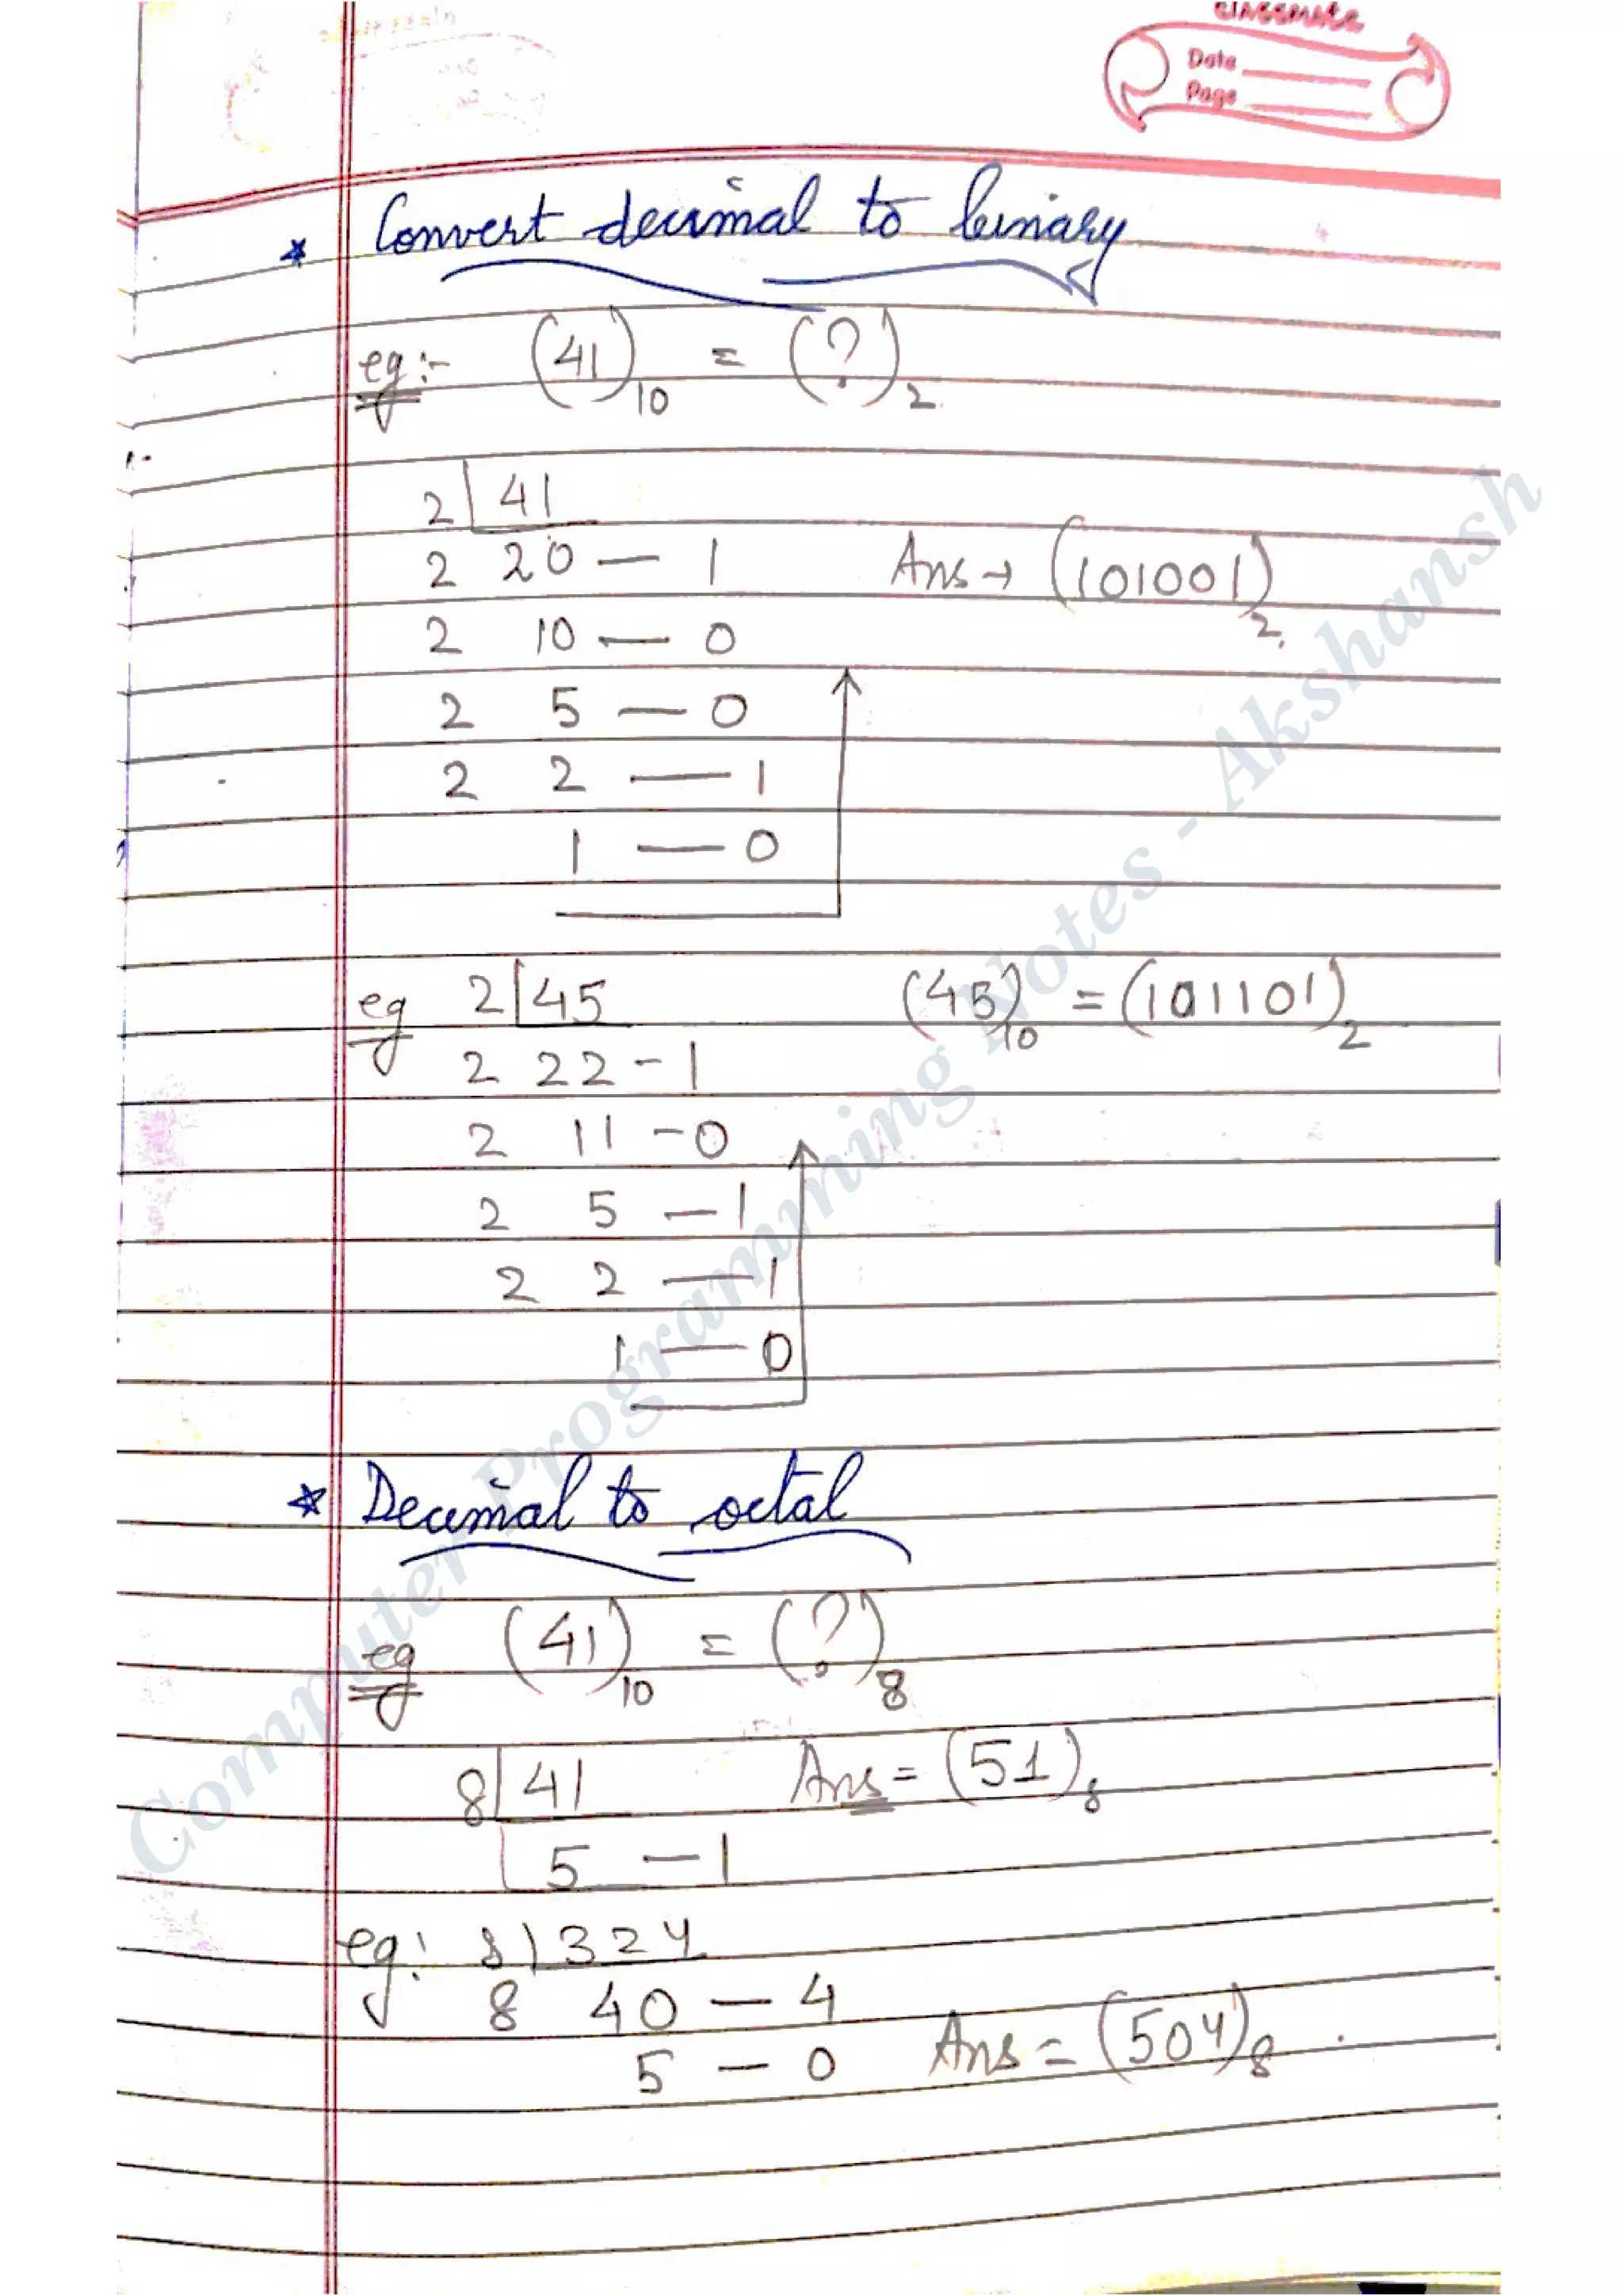 classmate
Date
Page
* Convert decimal to binary
eg:- (41)10 = (?)2
2 | 41
2 20 — 1 Ans → (101001)2
2 10 — 0
2 5 — 0
2 2 — 1
1 — 0
eg 2 | 45 (45)10 = (101101)2
2 22 - 1
2 11 - 0
2 5 — 1
2 2 — 1
1 — 0
* Decimal to octal
eg (41)10 = (?)8
8 | 41 Ans = (51)8
5 — 1
eg: 8 | 324
8 40 — 4
5 — 0 Ans = (504)8
Computer Programming Notes - Akshansh